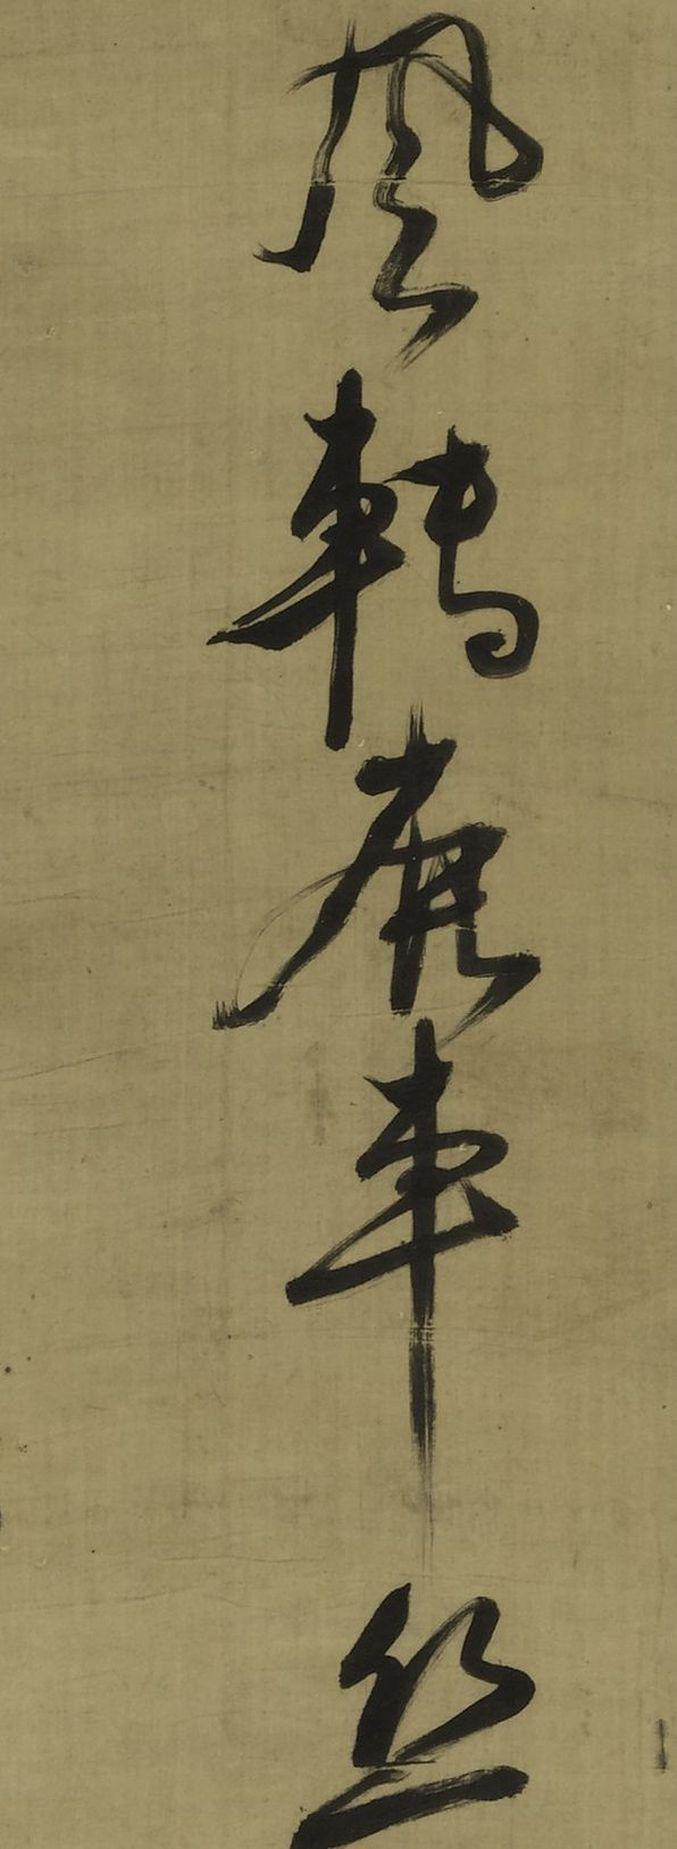 風轉鹿車